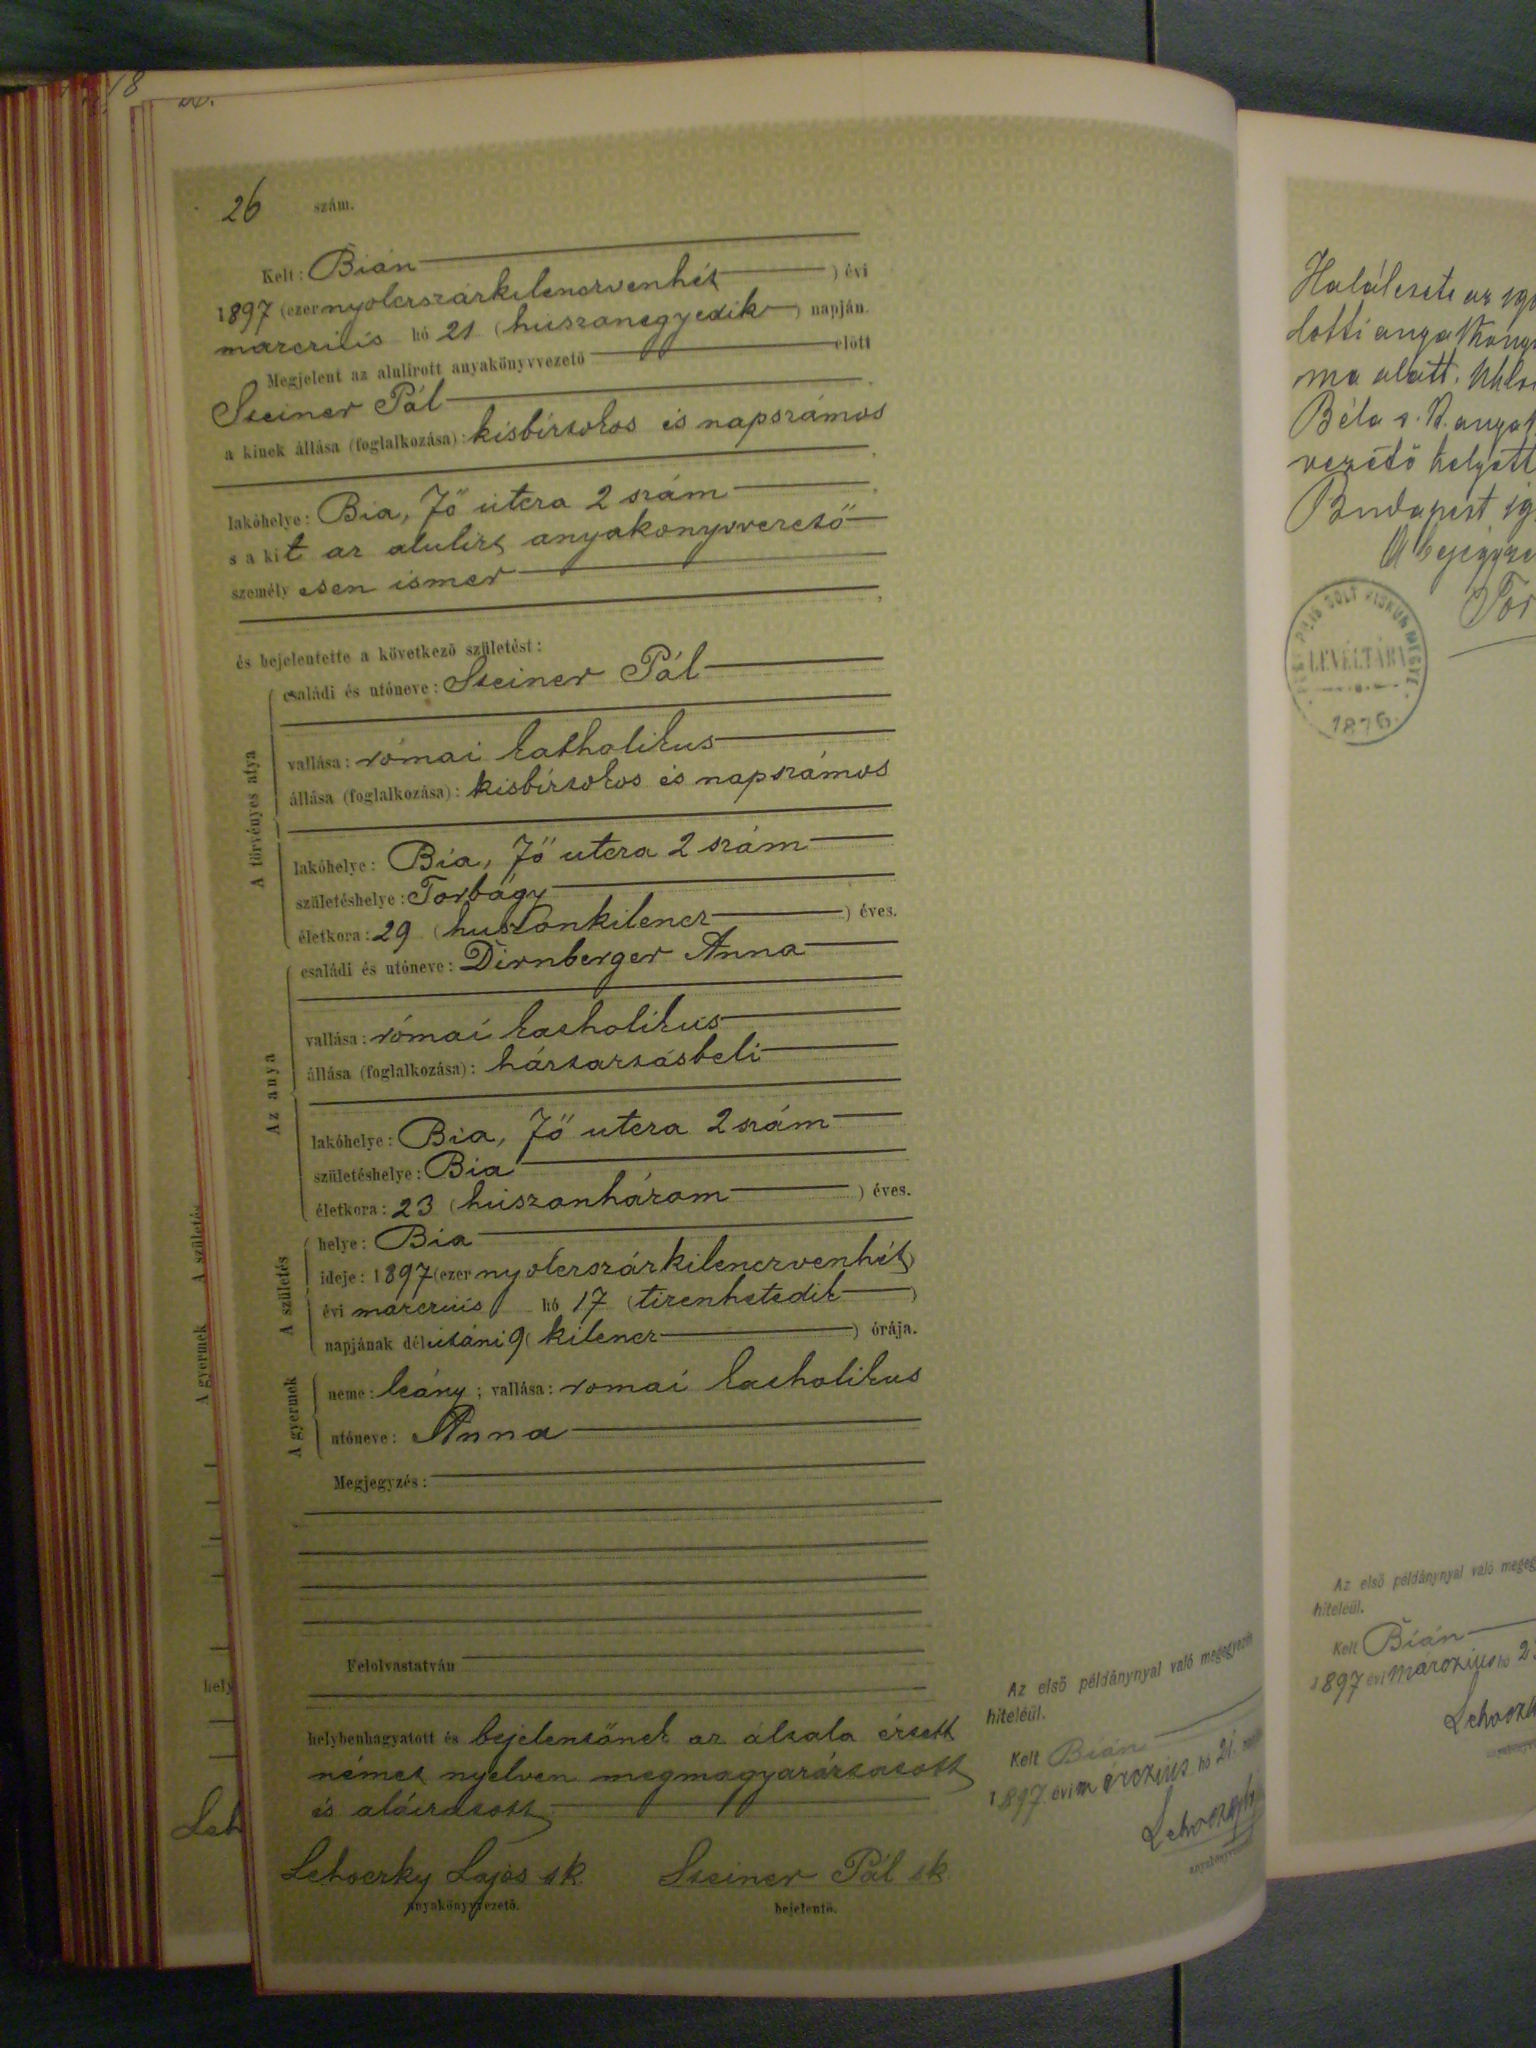 26 szám.
Kelt: Bián
1897 (ezer nyolczszázkilenczvenhét) évi
marczius hó 21 (huszonegyedik) napján.
Megjelent az alulirott anyakönyvvezető előtt
Steiner Pál
a kinek állása (foglalkozása): kisbirtokos és napszámos
lakóhelye: Bia, Fő utcza 2 szám
s a kit az alulirt anyakönyvvezető
személyesen ismer
és bejelentette a következő születést:
A törvényes atya
családi és utóneve: Steiner Pál
vallása: római katholikus
állása (foglalkozása): kisbirtokos és napszámos
lakóhelye: Bia, Fő utcza 2 szám
születéshelye: Torbágy
életkora: 29 (huszonkilencz) éves.
Az anya
családi és utóneve: Dirnberger Anna
vallása: római katholikus
állása (foglalkozása): háztartásbeli
lakóhelye: Bia, Fő utcza 2 szám
születéshelye: Bia
életkora: 23 (huszonhárom) éves.
A születés
helye: Bia
ideje: 1897 (ezer nyolczszázkilenczvenhét)
évi marczius hó 17 (tizenhetedik)
napjának délutáni 9 (kilencz) órája.
A gyermek
neme: leány; vallása: romai katholikus
utóneve: Anna
Megjegyzés:
Felolvastatván
helybenhagyatott és bejelentőnek az általa értett
német nyelven megmagyaráztatott
és aláiratott
Lehoczky Lajos sk. Steiner Pál sk.
anyakönyvvezető. bejelentő.
Az első példánynyal való megegyezés
hiteléül.
Kelt Bián
1897. évi márczius hó 21.
Lehoczky
anyakönyvvezető
A születés
A gyermek
hely
Leh
18
Halálesete az
lotti
ma alatt.
Béla s. k. anyak
vezető helyett
Budapest
A bejegyze
PEST PILIS SOLT KISKUN MEGYE
LEVÉLTÁRA
1876.
Az első példánynyal való megeg
hiteléül.
Kelt Bián
1897 évi márczius hó 2
Lehoczk